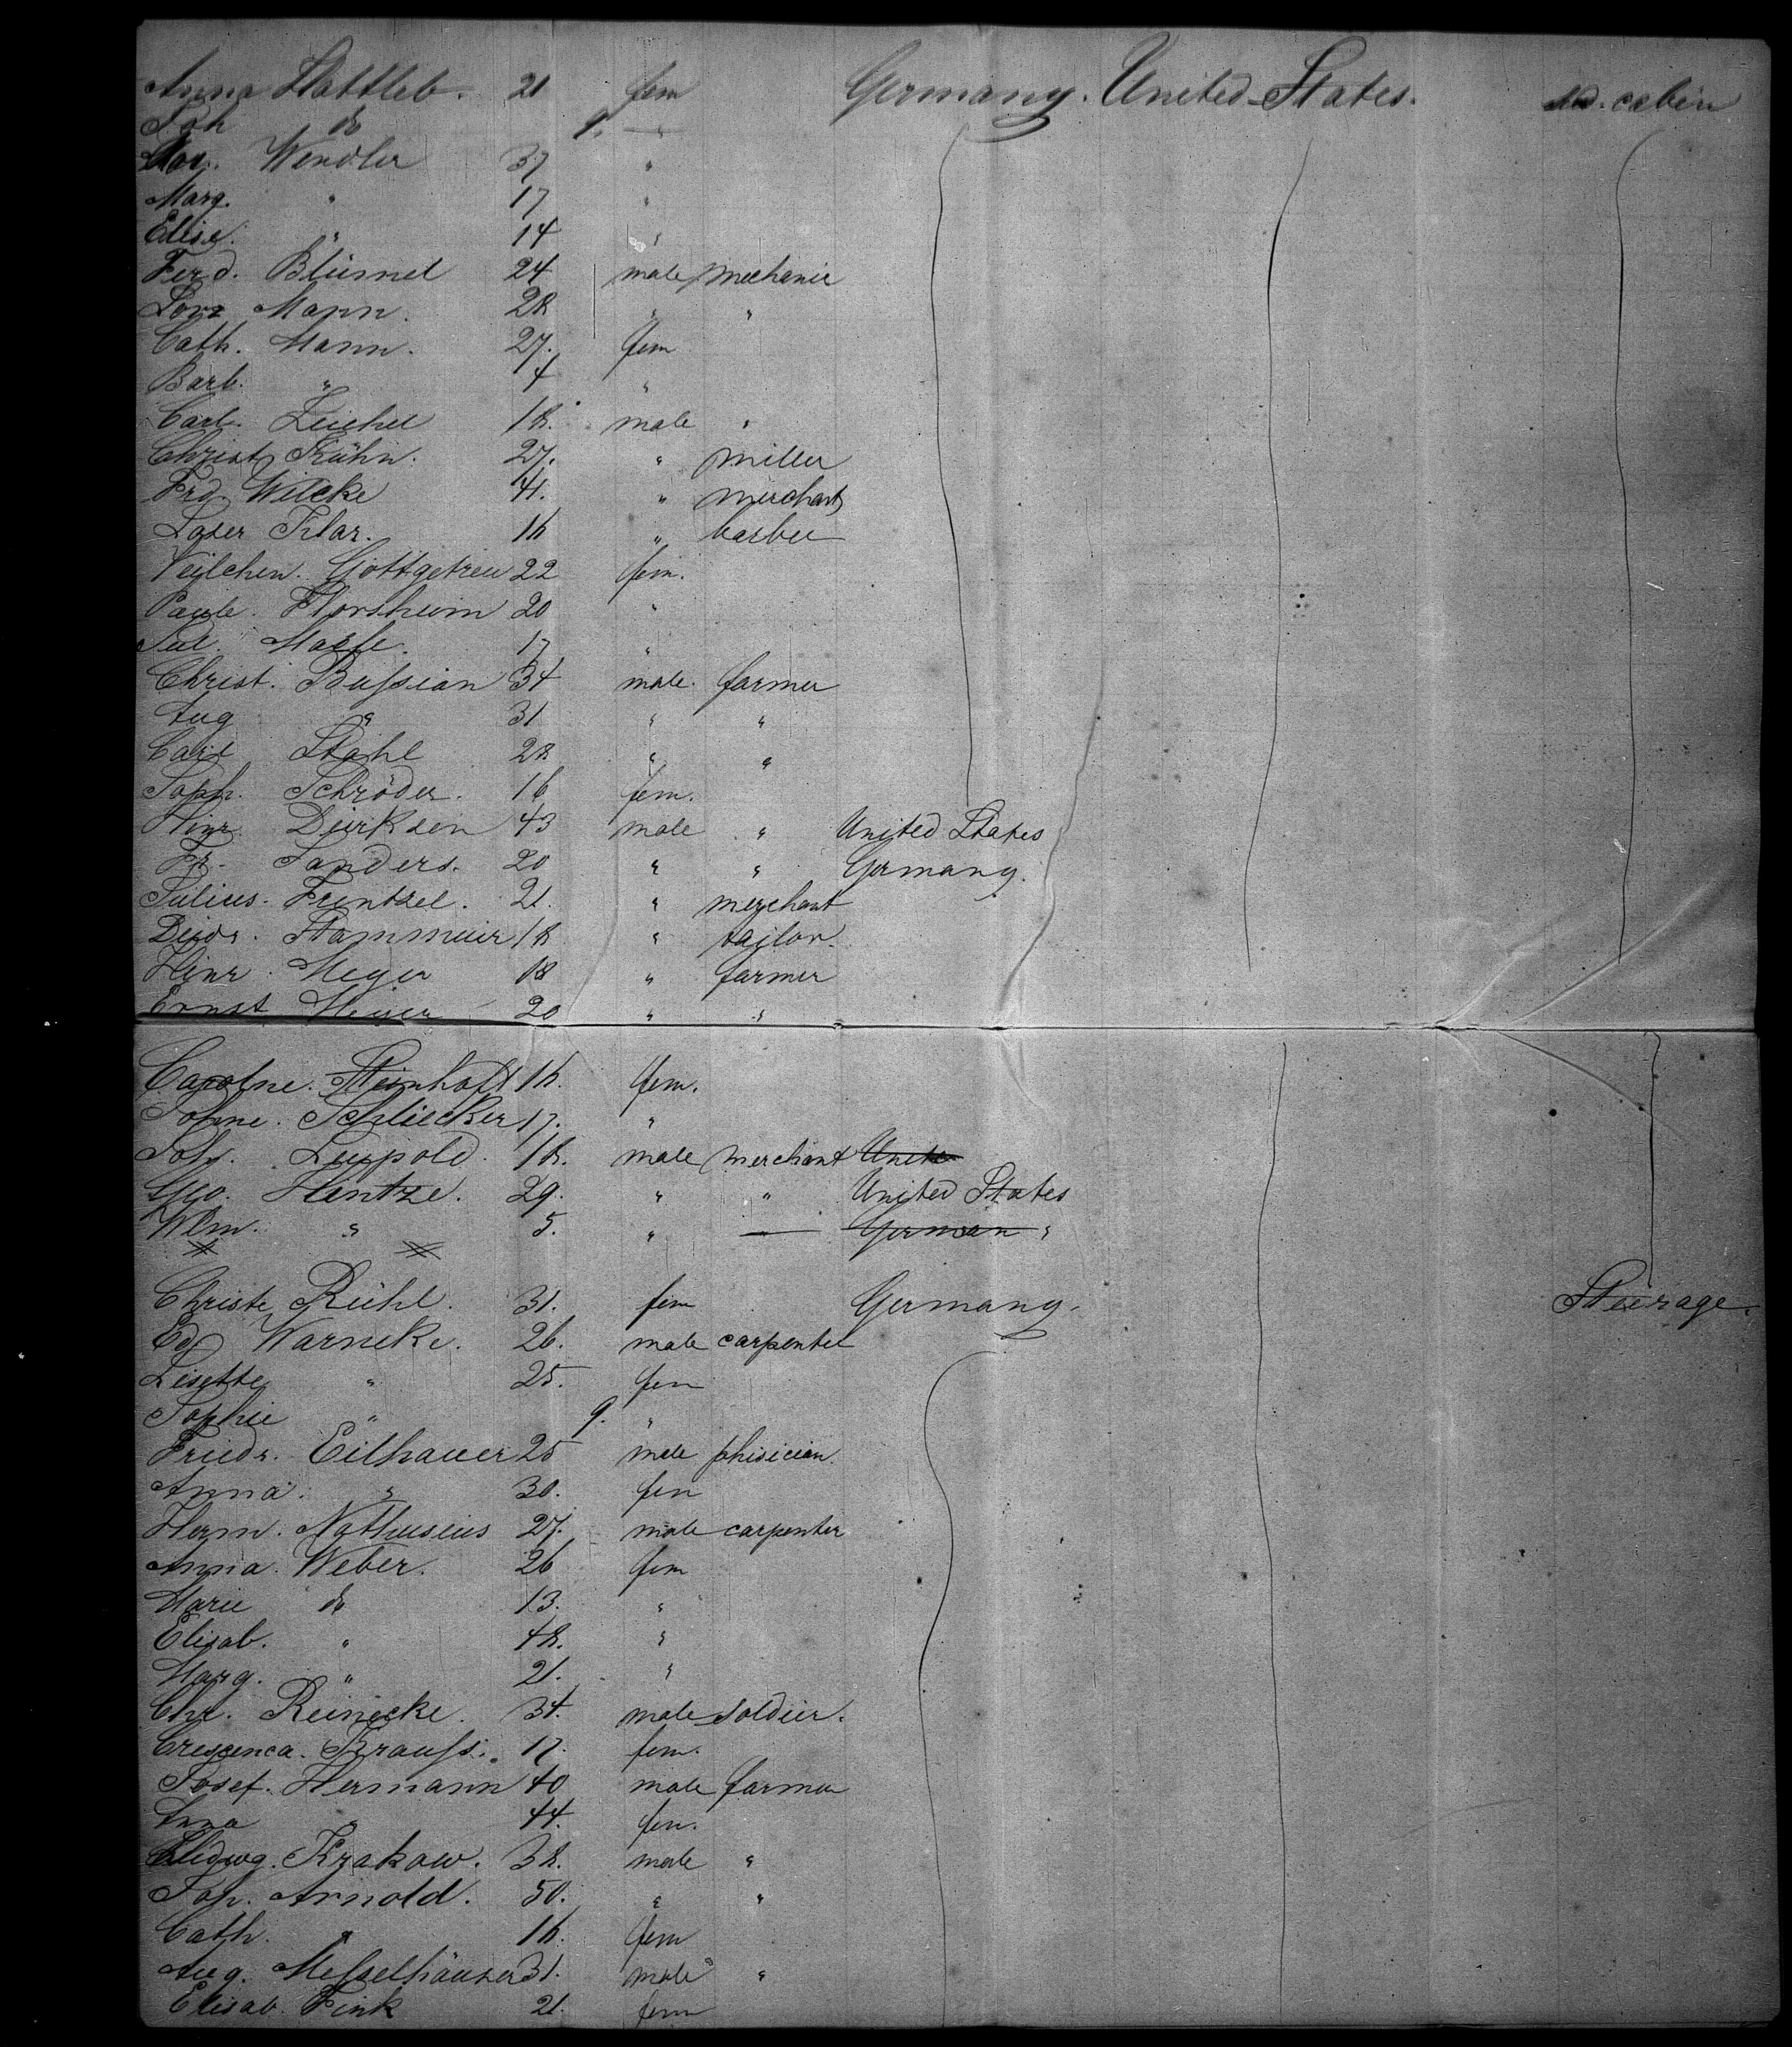 Anna Hattleb. 21 fem Germany. United States. cabin
Joh do 9. "
Wendler 37 "
Marg. " 17 "
Elise. " 14 "
Ferd. Blümel 24 male mechanic
Lor Mann. 28 " "
Cath. Mann. 27. fem
Barb. " 4 "
Carl. Zeichel 18. male "
Christ. Kühn. 27. " miller
Frd. Wilcke 41. " merchant
Laser Klar. 16 " barber
Veilchen. Gottgetreu 22 fem.
Paule. Florsheim 20 "
Jul. 17 "
Christ. Bussian 34 male. farmer
Aug " 31 " "
Carl Stahl 28 " "
Soph. Schröder. 16 fem.
Hinr. Dierksen 43 male " United States
Fr. Sanders. 20 " " Germany.
Julius. Frentzel. 21. " merchant
Diedr. Stammeier 18 " tailor.
Hinr. Meyer 18 " farmer
Ernst Meyer 20 " "
Carolne. Steinhoff 16. fem.
Johne. Schliecker 17. "
Joh. Leupold. 18. male merchant Unite
Geo. Hentze. 29. " " United States
Wlm. " 5. " — German "
Christe Rühl. 31. fem Germany. Steerage.
Ed Warneke. 26. male carpenter
Lisette " 25. fem
Sophie " 9. "
Friedr. Eilhauer 25 male phisician.
Anna. " 30. fem
Herm. Nathusius 27. male carpenter
Anna. Weber. 26 fem
Marie do 13. "
Elisab. " 48. "
Marg. " 21. "
Chr. Reinecke. 34. male soldier.
Crescenca. Krauss. 17. fem.
Josef. Hermann 40 male farmer
Anna " 44. fem.
Krakow. 38. male "
Joh. Arnold. 50. " "
Cath. " 16. fem
Aug. Messelhäuser 31. male "
Elisab. Fink 21. fem